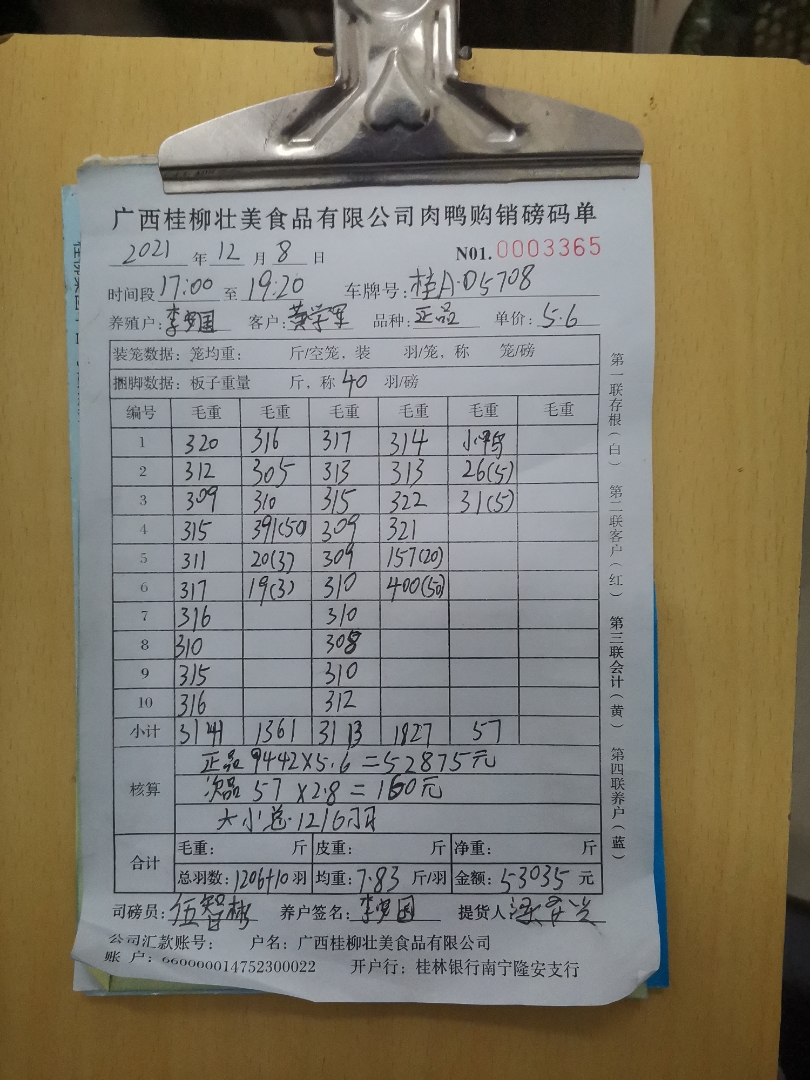 广西桂柳壮美食品有限公司肉鸭购销磅码单
2021 年 12 月 8 日 N01.0003365
时间段 17:00 至 19:20 车牌号: 桂A·D5708
养殖户: 李国 客户: 黄学军 品种: 正品 单价: 5.6
装笼数据: 笼均重: 斤/空笼, 装 羽/笼, 称 笼/磅
捆脚数据: 板子重量 斤, 称 40 羽/磅
编号 毛重 毛重 毛重 毛重 毛重 毛重
1 320 316 317 314 小鸭
2 312 305 313 313 26(5)
3 309 310 315 322 31(5)
4 315 391(50) 309 321
5 311 20(3) 309 157(20)
6 317 19(3) 310 400(50)
7 316 310
8 310 308
9 315 310
10 316 312
小计 3141 1361 3113 1827 57
核算 正品 9442×5.6=52875元
次品 57×2.8=160元
大小总·1216羽
合计 毛重: 斤 皮重: 斤 净重: 斤
总羽数: 1206+10 羽 均重: 7.83 斤/羽 金额: 53035 元
司磅员: 伍智彬 养户签名: 李国 提货人
公司汇款账号: 户名: 广西桂柳壮美食品有限公司
账 户: 660000014752300022 开户行: 桂林银行南宁隆安支行
第一联存根(白) 第二联客户(红) 第三联会计(黄) 第四联养户(蓝)